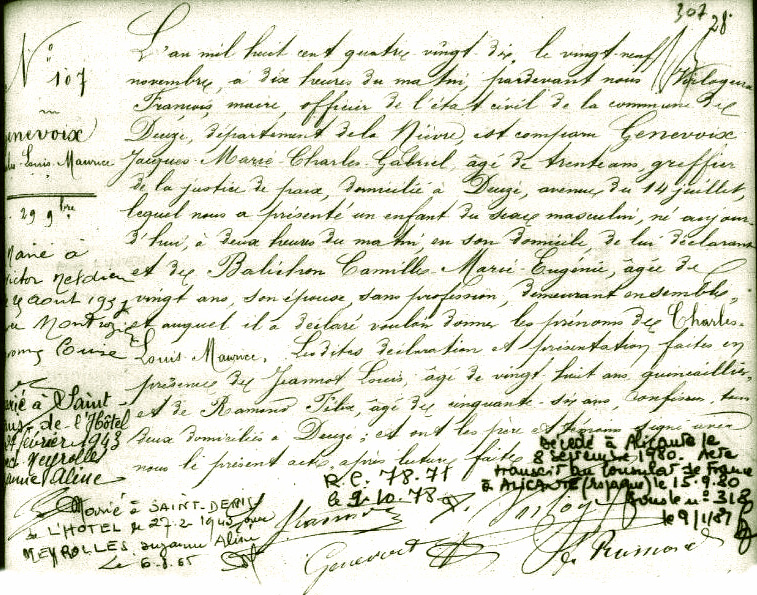 307 28
N° 107
Genevoix
Louis-Maurice
29 9bre
L'an mil huit cent quatre vingt dix, le vingt neuf
novembre, à dix heures du matin, pardevant nous
François, maire, officier de l'état civil de la commune de
Decize, département de la Nièvre, est comparu Genevoix
Jacques-Marie-Charles-Gabriel, âgé de trente ans, greffier
de la justice de paix, domicilié à Decize, avenue du 14 juillet,
lequel nous a présenté un enfant du sexe masculin, né aujour-
d'hui, à deux heures du matin, en son domicile de lui déclarant
et de Balichon Camille-Marie-Eugénie, âgée de
vingt ans, son épouse, sans profession, demeurant ensemble,
et auquel il a déclaré vouloir donner les prénoms de Charles-
Louis-Maurice. Lesdites déclaration et présentation faites en
présence de Jeannot Louis, âgé de vingt huit ans, quincaillier,
et de Ramond Félix, âgé de cinquante-six ans, confiseur, tous
deux domiciliés à Decize; et ont les père et témoins signé avec
nous le présent acte, après lecture faite.
Marié à
août
à Saint
de l'Hôtel
février 1943
Meyrolles
Aline
Marié à SAINT-DENIS
de L'HOTEL le 27-2 1943 avec
MEYROLLES Suzanne Aline
R.C. 78.71
le 2-10-78
Décédé à Alicante le
8 septembre 1980. Acte
transcrit au Consulat de France
à ALICANTE (Espagne) le 15.9.80
sous le n° 318
le 9/1/81
Genevoix